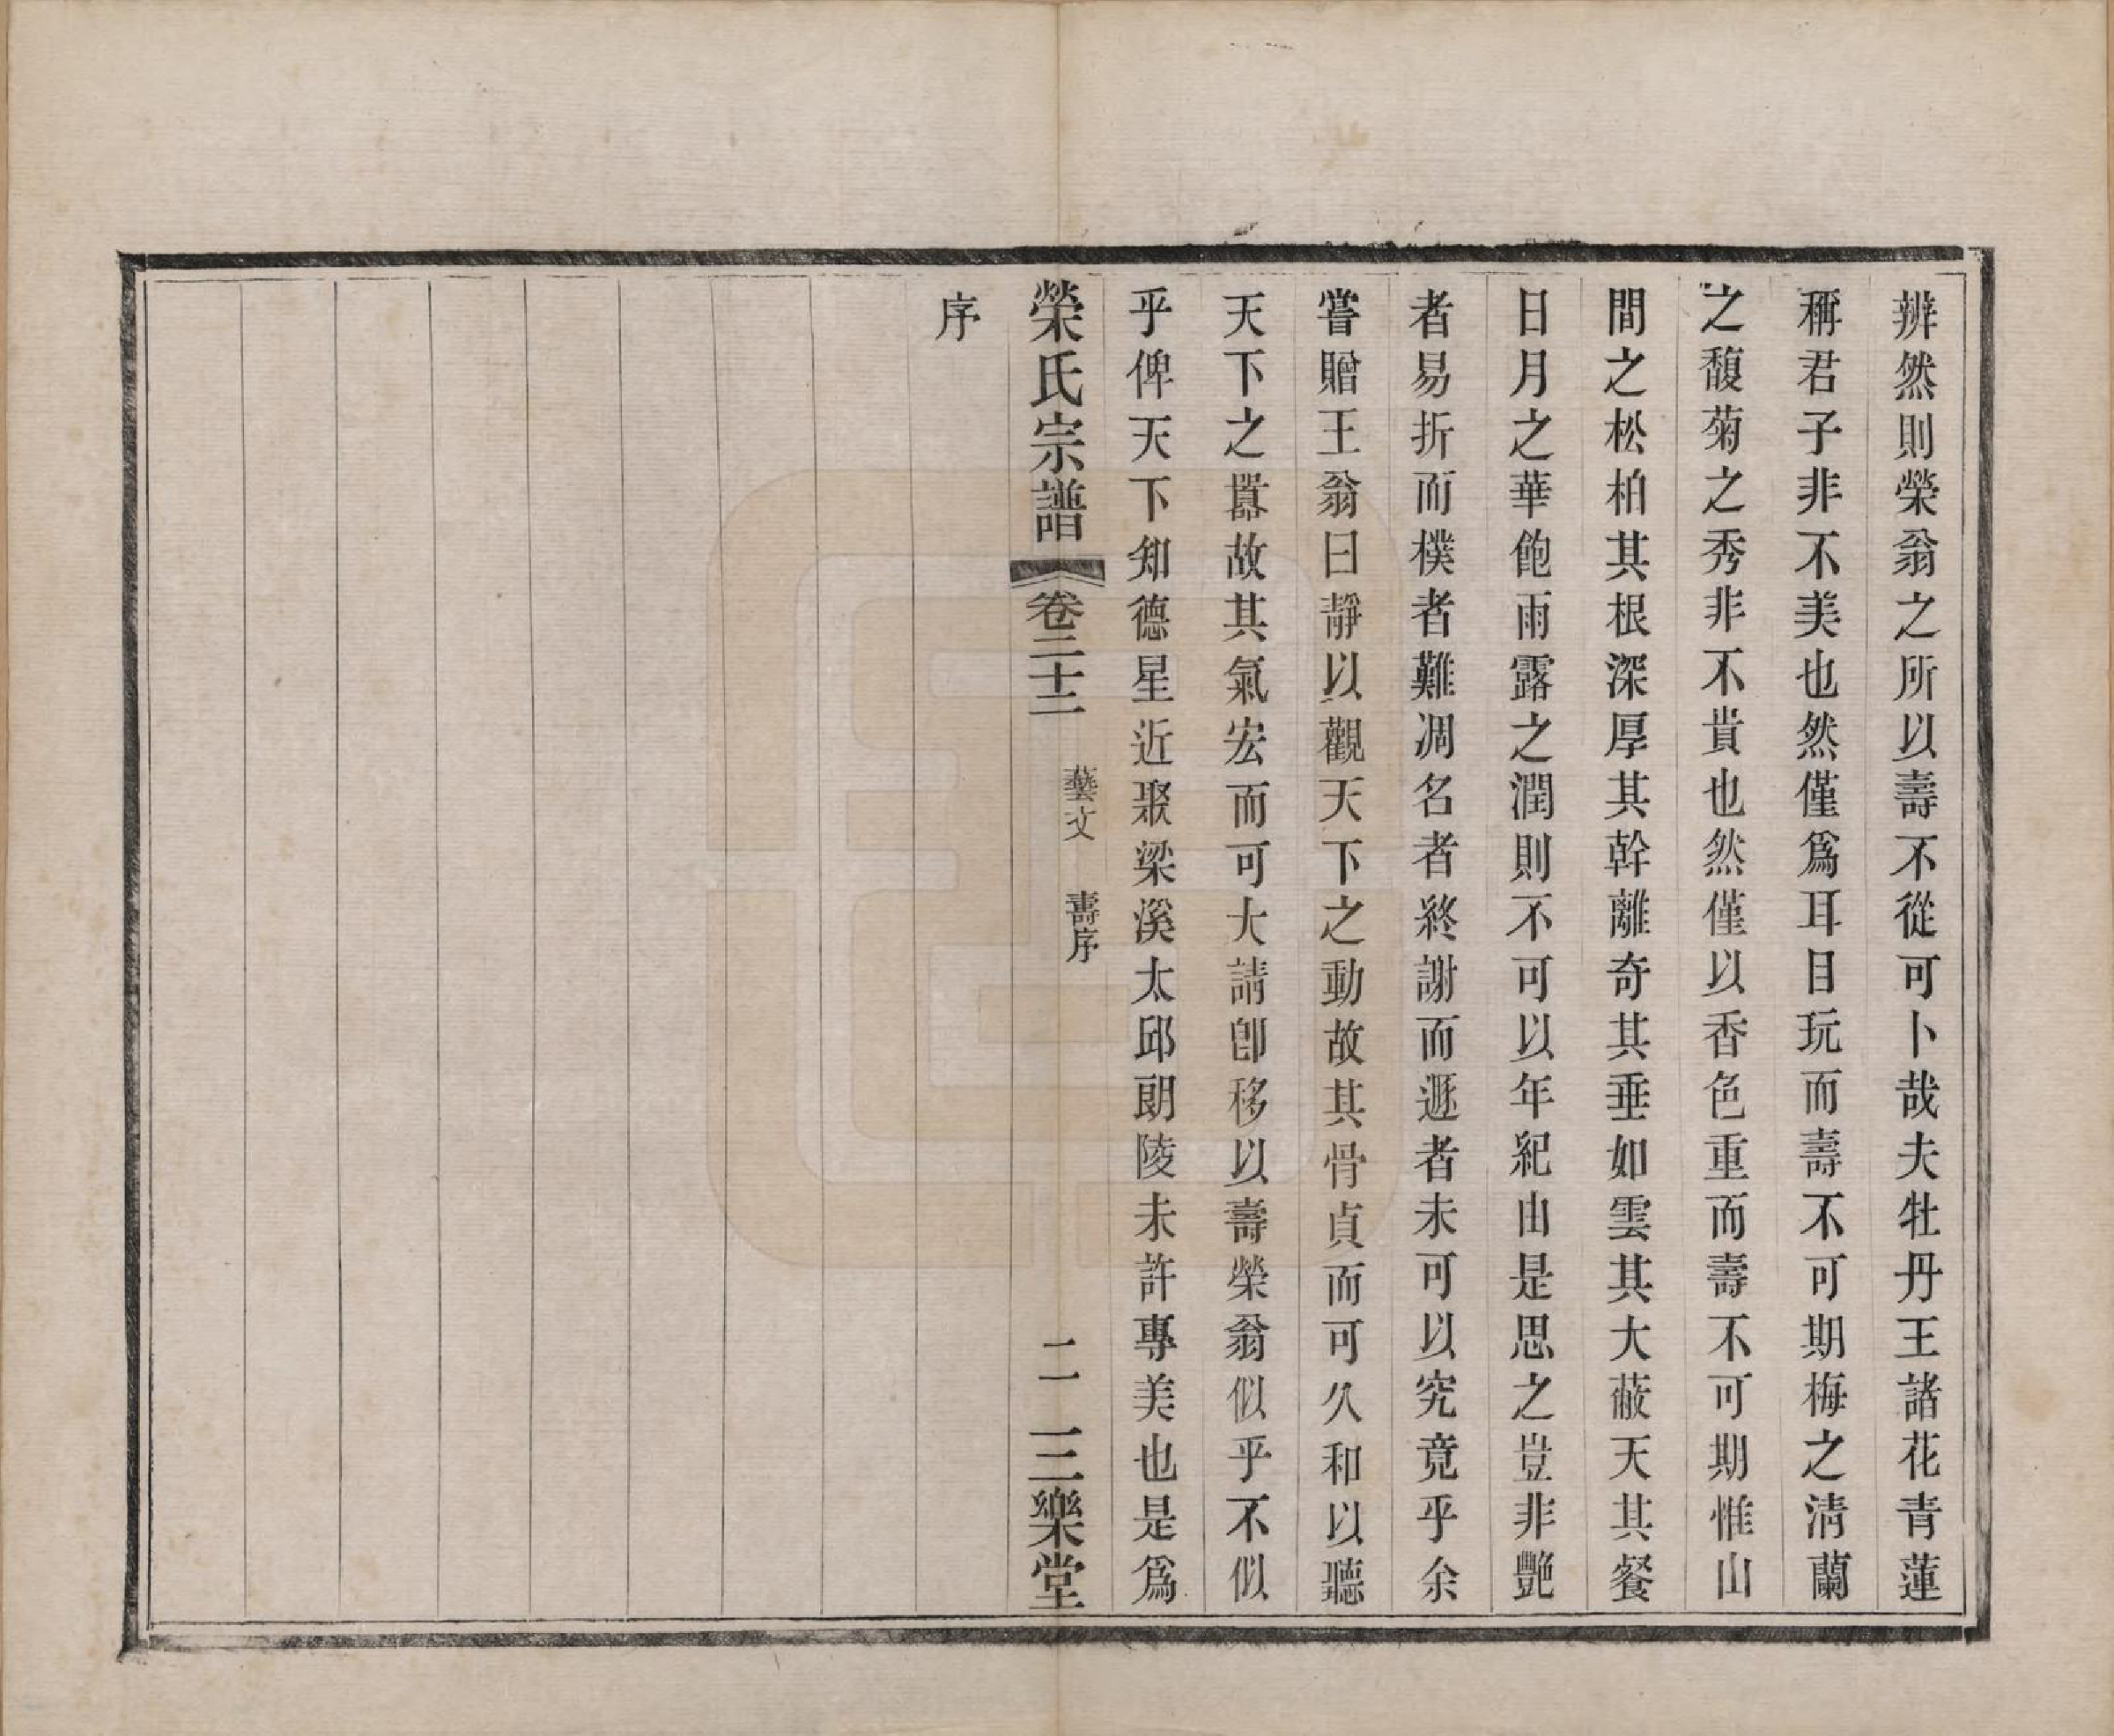 辨然則榮翁之所以壽不從可卜哉夫牡丹王諸花青蓮
稱君子非不美也然僅爲耳目玩而壽不可期梅之淸蘭
之馥菊之秀非不貴也然僅以香色重而壽不可期惟山
間之松柏其根深厚其幹離奇其垂如雲其大蔽天其餐
日月之華飽雨露之潤則不可以年紀由是思之豈非艷
者易折而樸者難凋名者終謝而遯者未可以究竟乎余
嘗贈王翁曰靜以觀天下之動故其骨貞而可久和以聽
天下之囂故其氣宏而可大請卽移以壽榮翁似乎不似
乎俾天下知德星近聚梁溪太邱朗陵未許專美也是爲
榮氏宗譜 卷二十二 藝文 壽序 二 三樂堂
序